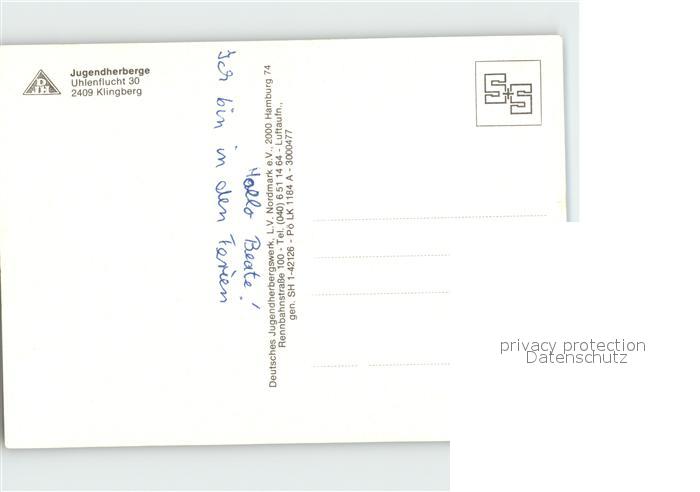 DJH
Jugendherberge
Uhlenflucht 30
2409 Klingberg
Hallo Beate!
Ich bin in den Ferien
Deutsches Jugendherbergswerk, L.V. Nordmark e.V., 2000 Hamburg 74
Rennbahnstraße 100 - Tel. (040) 6 51 14 64 - Luftaufn.,
gen. SH 1-42126 - Pö LK 1184 A - 3000477
privacy protection
Datenschutz